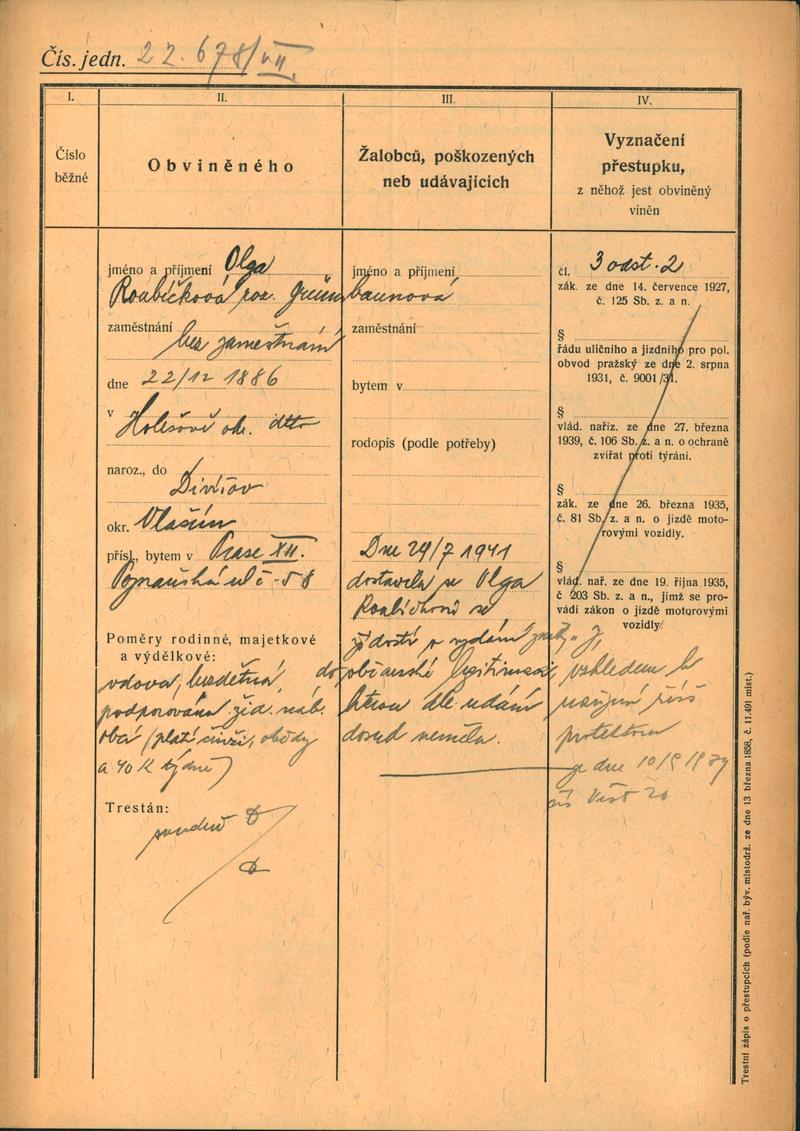 Čís. jedn. 22.678/VII
I.
II.
III.
IV.
Číslo
běžné
Obviněného
Žalobců, poškozených
neb udávajících
Vyznačení
přestupku,
z něhož jest obviněný
viněn
jméno a příjmení Olga
Roubíčková roz. Grünbaunová
zaměstnání
bez zaměstnání
dne 22/12 1886
v Holešově okr. dtto
naroz., do
Divišov
okr. Vlašim
přísl., bytem v Praze XII.
ul č. 58
Poměry rodinné, majetkové
a výdělkové:
vdova, bezdětná,
podporována žid. náb.
obcí (platí činži, obědy
a 40 K týdně)
Trestán:
jméno a příjmení
zaměstnání
bytem v
rodopis (podle potřeby)
Dne 24/7 1941
dostavila se Olga
Roubíčková se
žádostí o vydání
občanské legitimace,
kterou dle udání
dosud neměla.
čl. 3 odst. 2
zák. ze dne 14. července 1927,
č. 125 Sb. z. a n.
§
řádu uličního a jízdního pro pol.
obvod pražský ze dne 2. srpna
1931, č. 9001/31.
§
vlád. naříz. ze dne 27. března
1939, č. 106 Sb. z. a n. o ochraně
zvířat proti týrání.
§
zák. ze dne 26. března 1935,
č. 81 Sb. z. a n. o jízdě moto-
rovými vozidly.
§
vlád. nař. ze dne 19. října 1935,
č. 203 Sb. z. a n., jímž se pro-
vádí zákon o jízdě motorovými
vozidly.
vzhledem k
Trestní zápis o přestupcích (podle nař. býv. místodrž. ze dne 13 března 1858, č. 11.491 míst.)